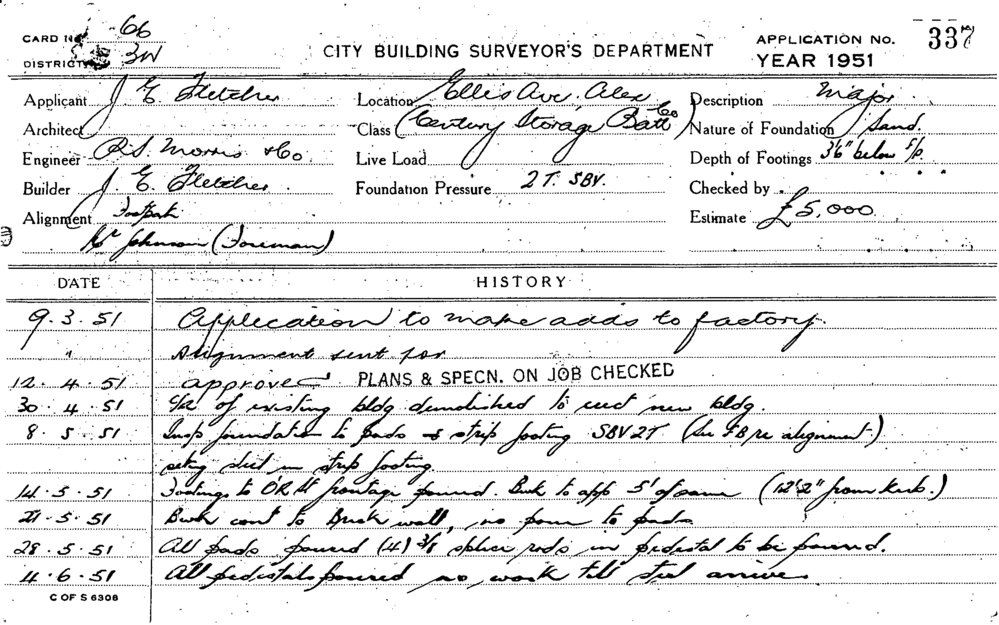 CARD No. 66
DISTRICT 3W
CITY BUILDING SURVEYOR'S DEPARTMENT
APPLICATION No. 337
YEAR 1951
Applicant J. E. Fletcher
Location Ellis Ave. Alex
Description Major
Architect
Class (Century Storage Batt Co)
Nature of Foundation Sand.
Engineer R.S. Morris & Co
Live Load
Depth of Footings 3'6" below f/p.
Builder J. E. Fletcher
Foundation Pressure 2 T. SBV.
Checked by
Alignment Footpath
Estimate £5,000
Mr Johnson (Foreman)
DATE HISTORY
9.3.51 Application to make adds to factory.
" Alignment sent for
12.4.51 approved PLANS & SPECN. ON JOB CHECKED
30.4.51 of existing bldg demolished to erect new bldg.
8.5.51 Insp foundation to pads & strip footing SBV 2T (See FB re alignment)
steel in strip footing.
14.5.51 Footings to frontage poured. Bwk to app 5' of same (12'2" from Kerb.)
21.5.51 Bwk cont to Brick wall, no pour to pads
28.5.51 All pads poured (4) splice rods in pedestal to be poured.
4.6.51 All pedestals poured no work till steel arrives
C OF S 6308